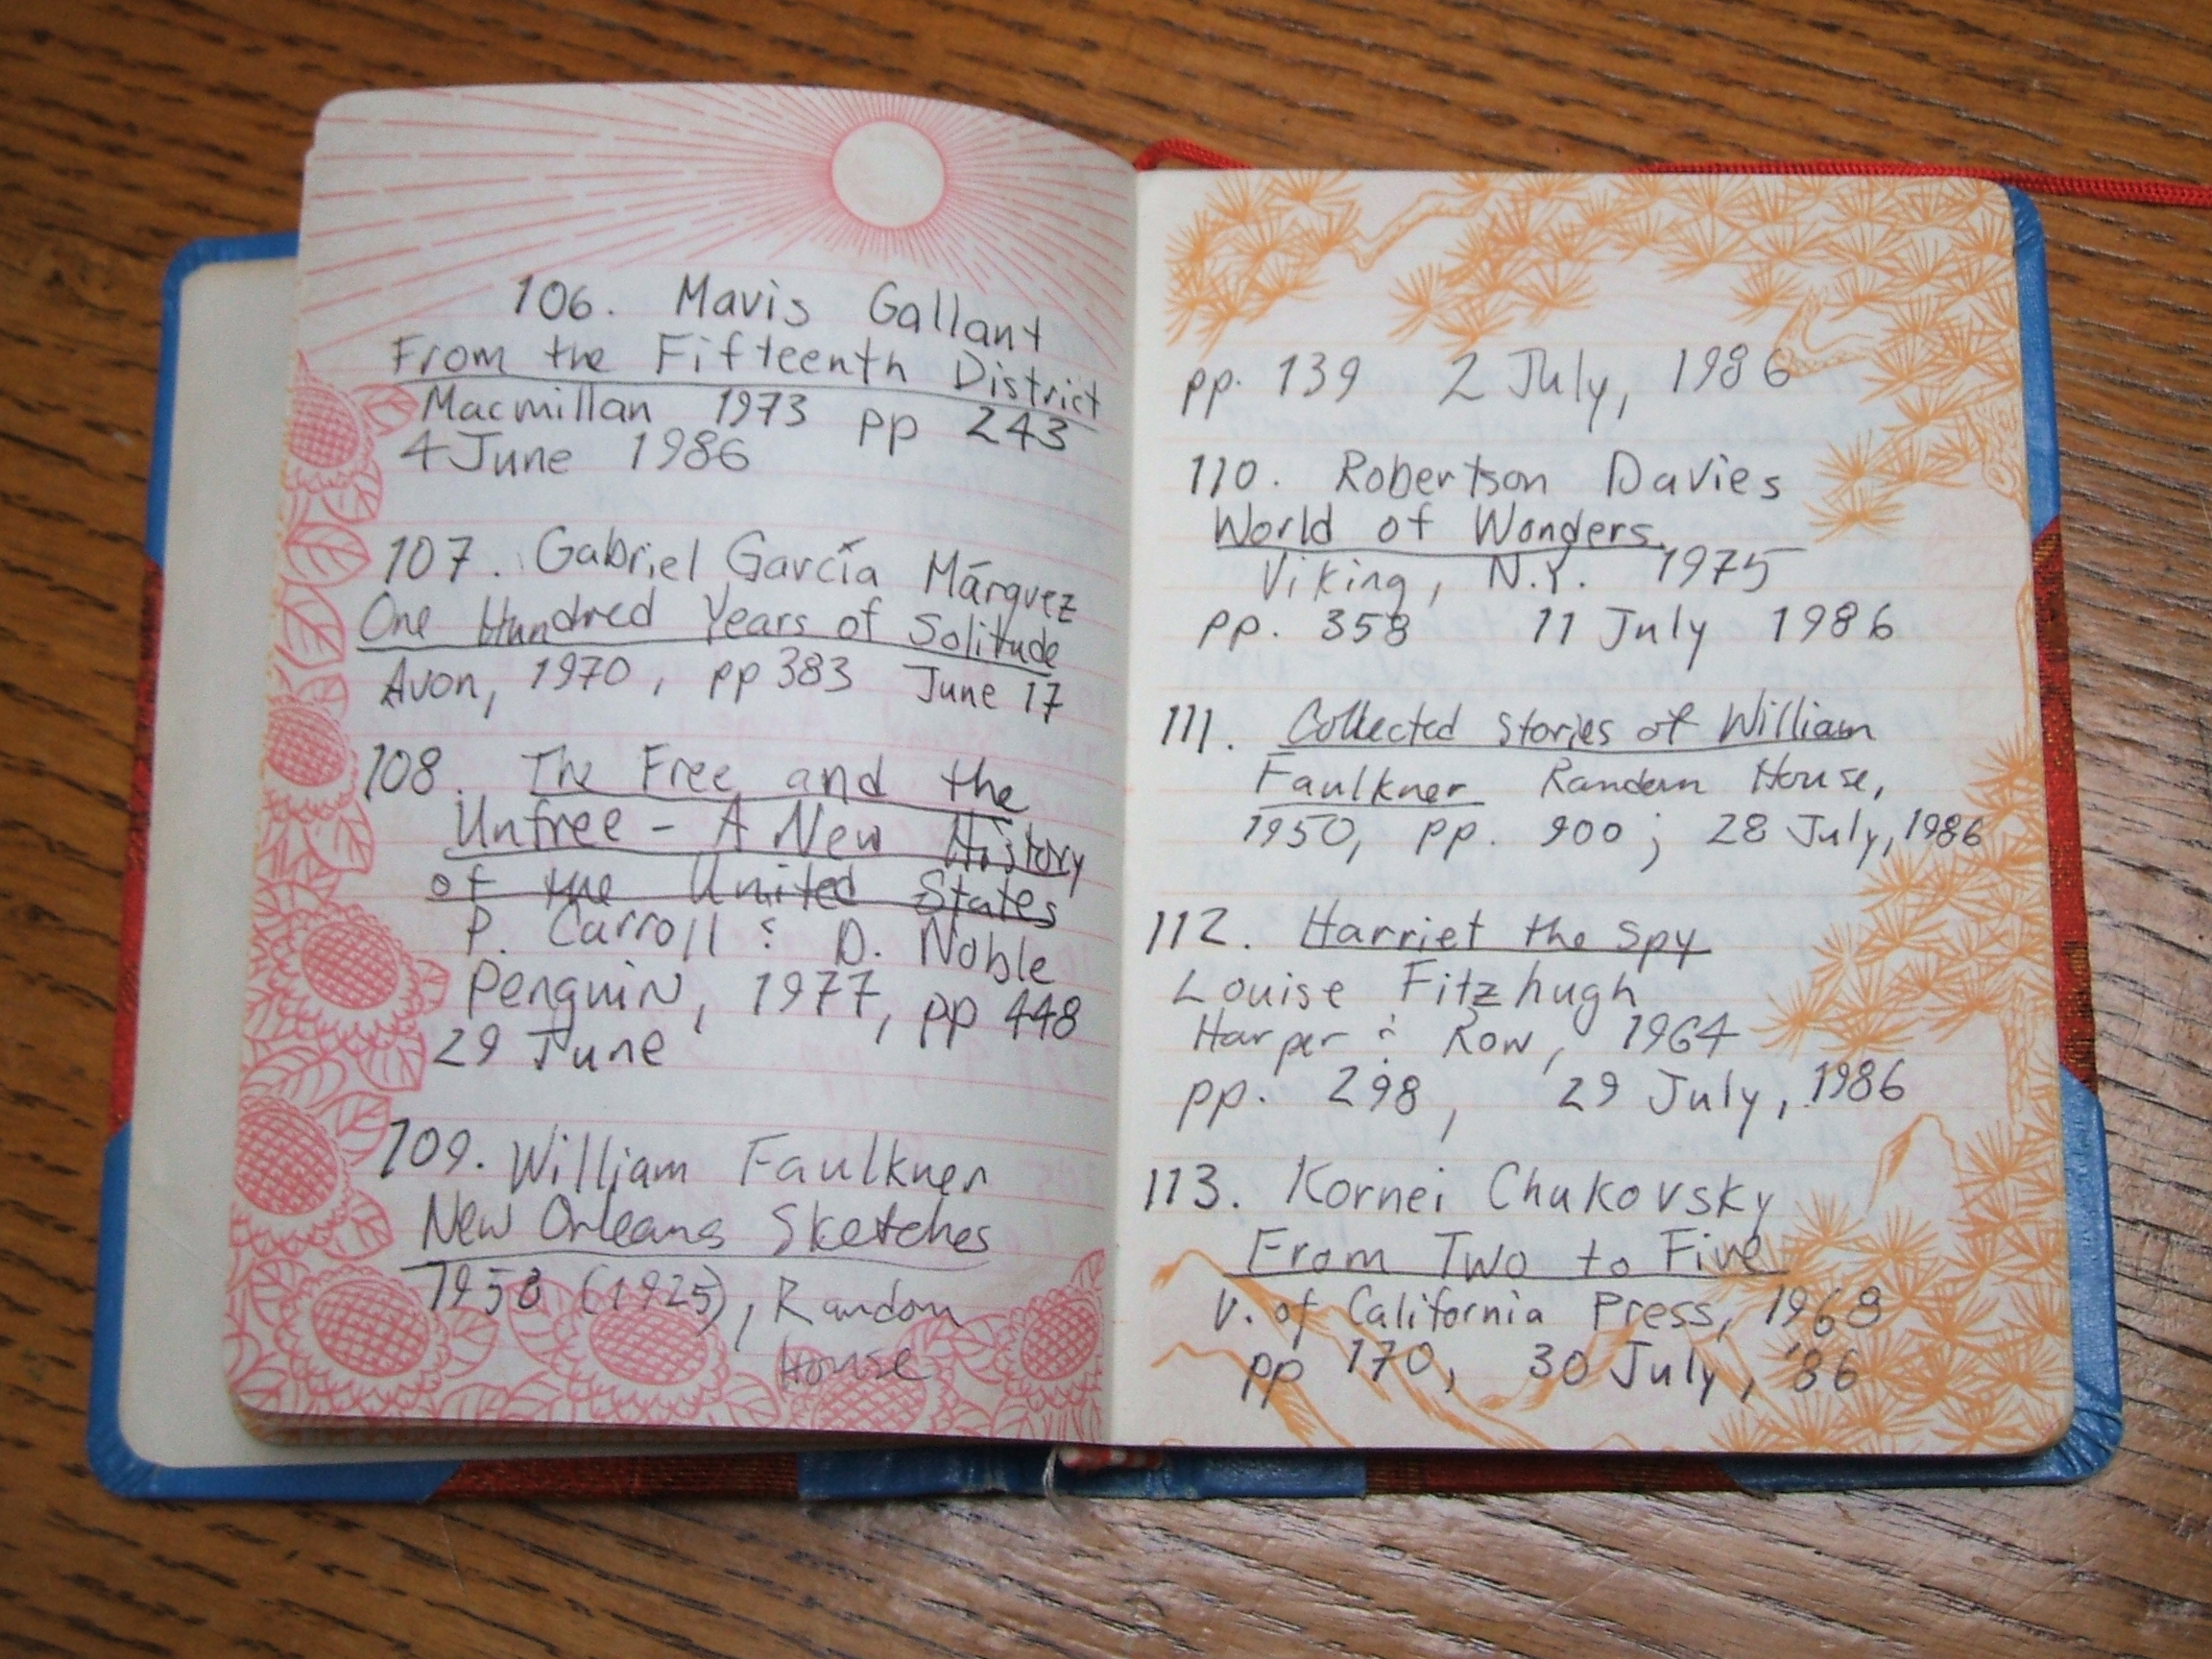 106. Mavis Gallant
From the Fifteenth District
Macmillan 1973 pp 243
4 June 1986
107. Gabriel García Márquez
One Hundred Years of Solitude
Avon, 1970, pp 383 June 17
108. The Free and the
Unfree - A New History
of the United States
P. Carroll & D. Noble
Penguin, 1977, pp 448
29 June
109. William Faulkner
New Orleans Sketches
1958 (1925), Random
House
pp. 139 2 July, 1986
110. Robertson Davies
World of Wonders
Viking, N.Y. 1975
pp. 358 11 July 1986
111. Collected Stories of William
Faulkner Random House,
1950, pp. 900; 28 July, 1986
112. Harriet the Spy
Louise Fitzhugh
Harper & Row, 1964
pp. 298, 29 July, 1986
113. Kornei Chukovsky
From Two to Five
U. of California Press, 1968
pp 170, 30 July, '86